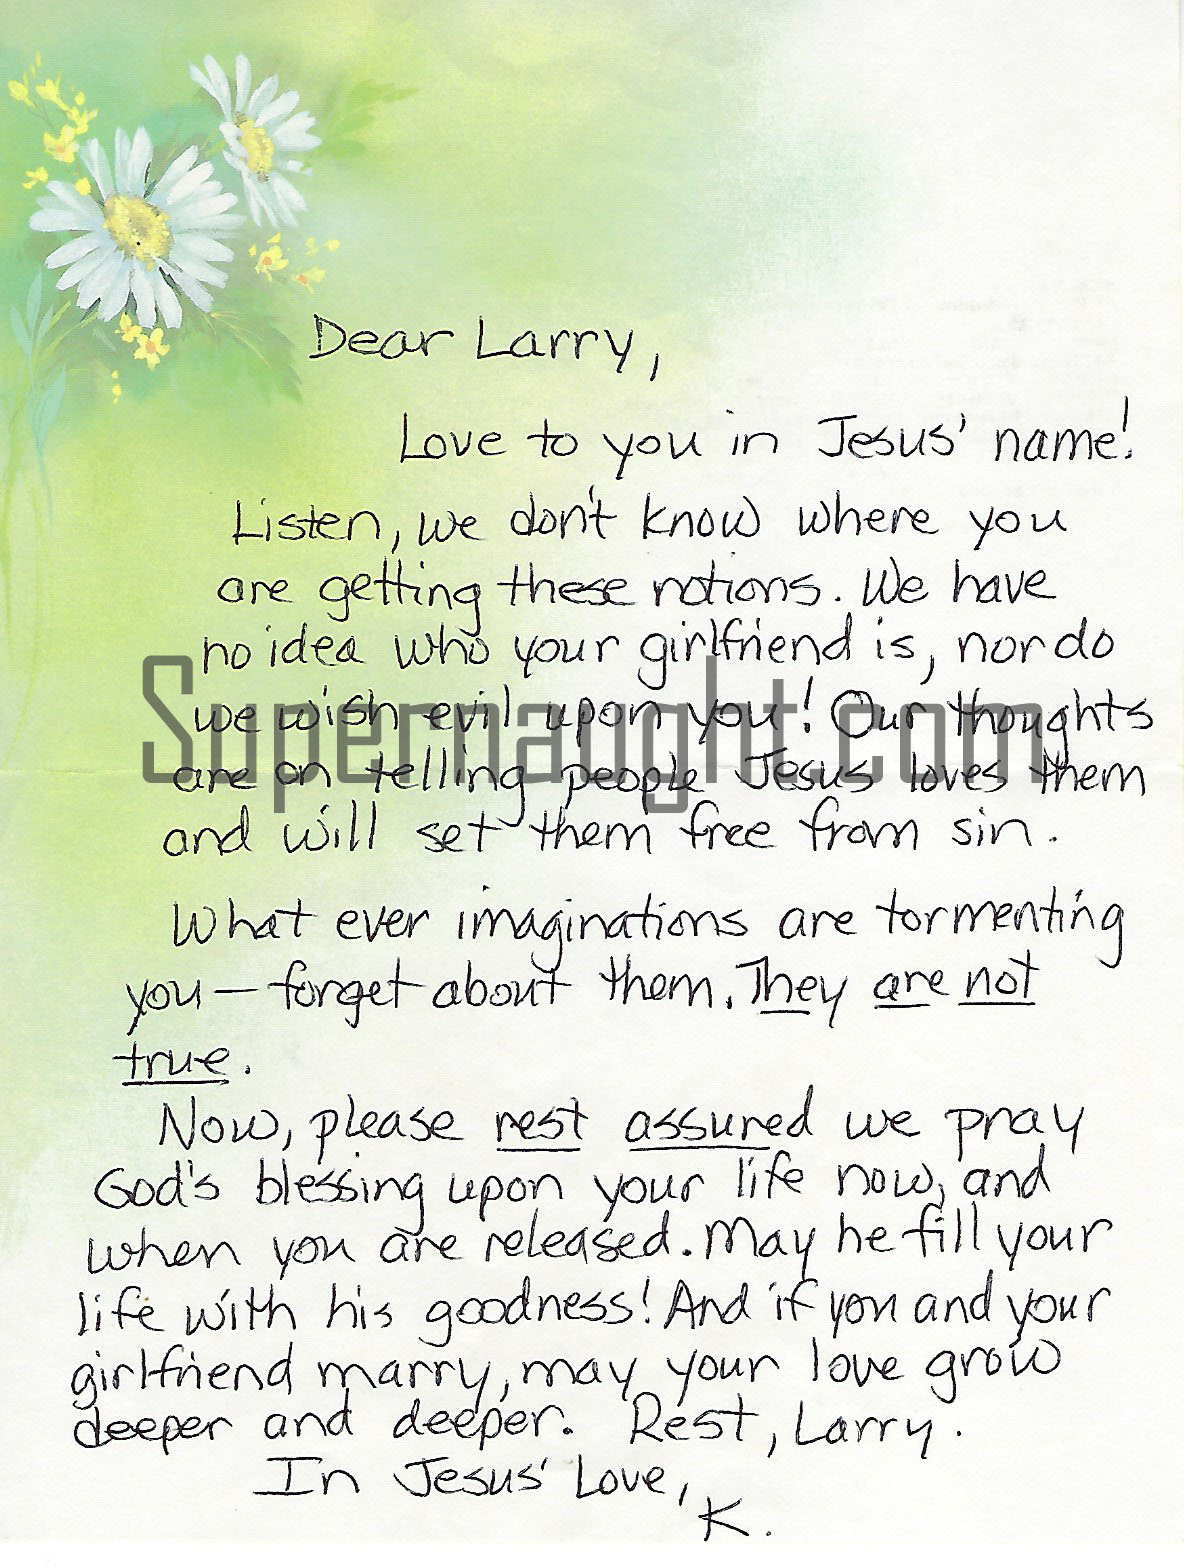 Dear Larry,
Love to you in Jesus' name!
Listen, we don't know where you
are getting these notions. We have
no idea who your girlfriend is, nor do
we wish evil upon you! Our thoughts
Supernaught.com
are on telling people Jesus loves them
and will set them free from sin.
What ever imaginations are tormenting
you — forget about them. They are not
true.
Now, please rest assured we pray
God's blessing upon your life now, and
when you are released. May he fill your
life with his goodness! And if you and your
girlfriend marry, may your love grow
deeper and deeper. Rest, Larry.
In Jesus' Love,
K.